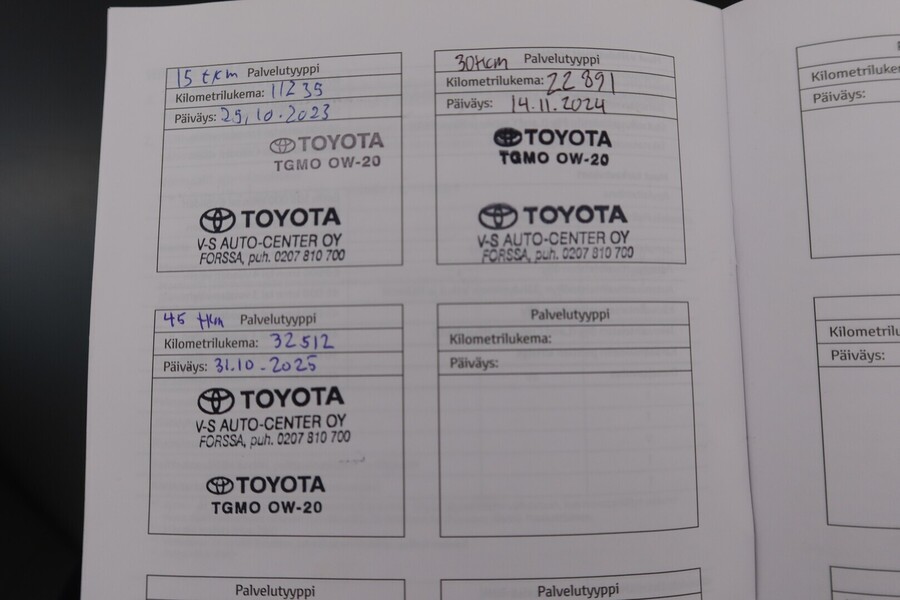 15 tkm Palvelutyyppi
Kilometrilukema: 11235
Päiväys: 25.10.2023
TOYOTA
TGMO 0W-20
TOYOTA
V-S AUTO-CENTER OY
FORSSA, puh. 0207 810 700
30tkm Palvelutyyppi
Kilometrilukema: 22 891
Päiväys: 14.11.2024
TOYOTA
TGMO 0W-20
TOYOTA
V-S AUTO-CENTER OY
FORSSA, puh. 0207 810 700
45 tkm Palvelutyyppi
Kilometrilukema: 32512
Päiväys: 31.10-2025
TOYOTA
V-S AUTO-CENTER OY
FORSSA, puh. 0207 810 700
TOYOTA
TGMO 0W-20
Palvelutyyppi
Kilometrilukema:
Päiväys:
Palvelutyyppi
Palvelutyyppi
Päiväys:
Päiväys: